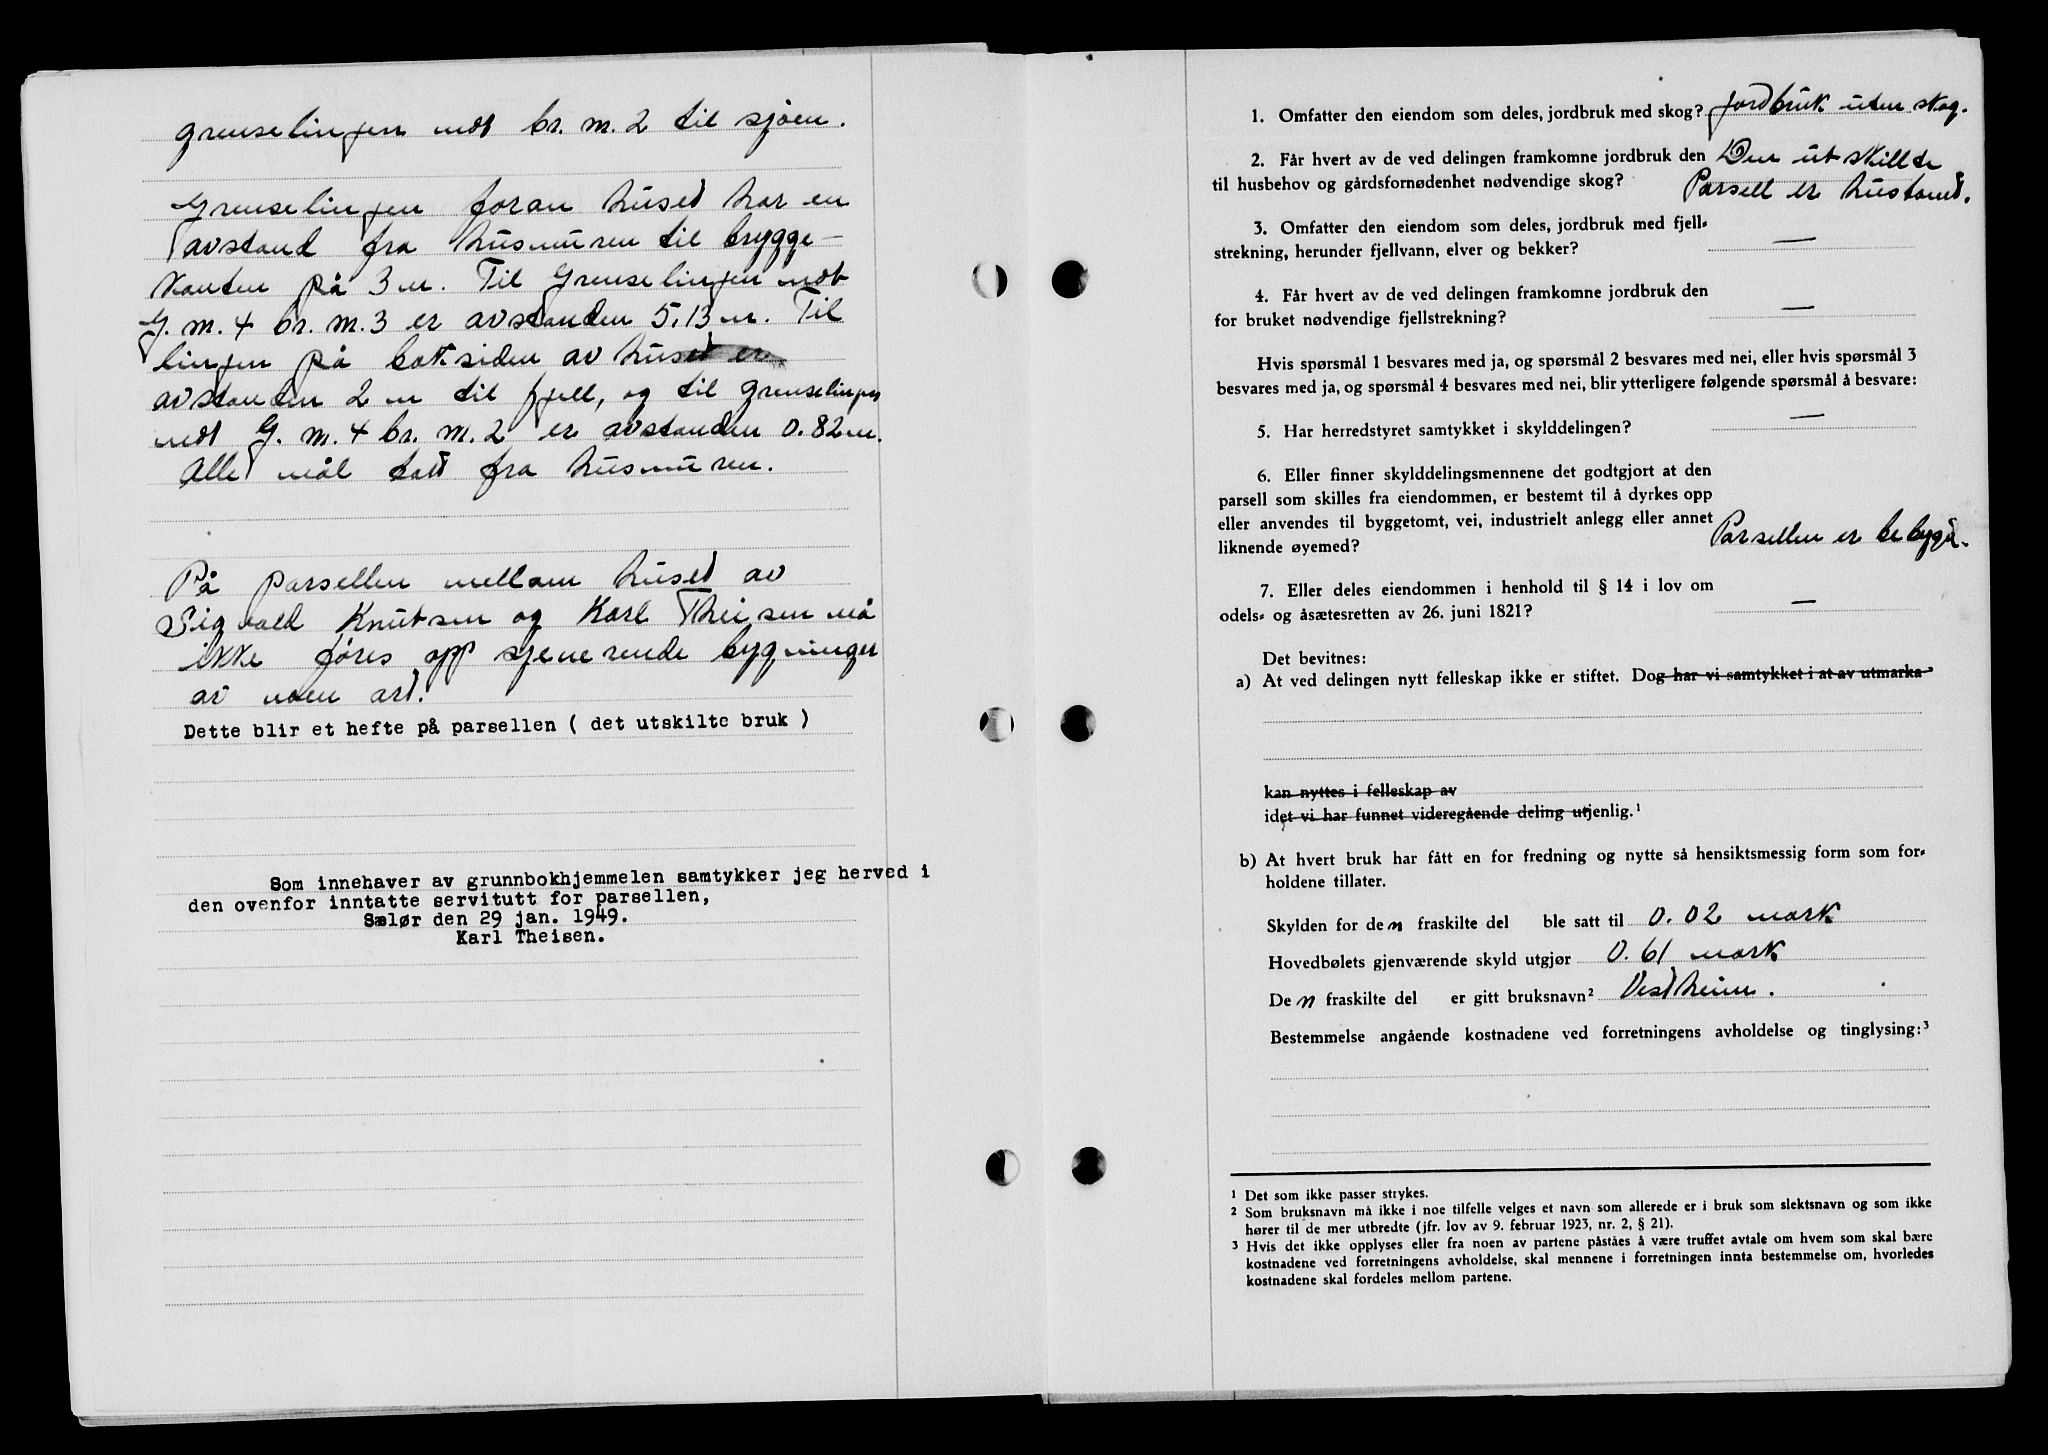 grenselinjen mot br. nr. 2 til sjøen.
Grenselinjen foran huset har en
avstand fra husmuren til brygge-
kanten på 3 m. Til Grenselinjen mot
G. nr. 4 br. nr. 3 er avstanden 5.13 m. Til
linjen på baksiden av huset er
avstanden 2 m til fjell, og til grenselinjen
mot G. nr. 4 br. nr. 2 er avstanden 0.82 m.
Alle mål tatt fra husmuren.
På parsellen mellom huset av
Sigvald Knutsen og Karl Theisen må
ikke føres opp sjenerende bygninger
av noen art.
Dette blir et hefte på parsellen ( det utskilte bruk )
Som innehaver av grunnbokhjemmelen samtykker jeg herved i
den ovenfor inntatte servitutt for parsellen,
Sælør den 29 jan. 1949.
Karl Theisen.
1. Omfatter den eiendom som deles, jordbruk med skog? jordbruk uten skog.
2. Får hvert av de ved delingen framkomne jordbruk den Den utskillte
til husbehov og gårdsfornødenhet nødvendige skog? Parsell er hustomt.
3. Omfatter den eiendom som deles, jordbruk med fjell-
strekning, herunder fjellvann, elver og bekker? —
4. Får hvert av de ved delingen framkomne jordbruk den
for bruket nødvendige fjellstrekning? —
Hvis spørsmål 1 besvares med ja, og spørsmål 2 besvares med nei, eller hvis spørsmål 3
besvares med ja, og spørsmål 4 besvares med nei, blir ytterligere følgende spørsmål å besvare:
5. Har herredstyret samtykket i skylddelingen? —
6. Eller finner skylddelingsmennene det godtgjort at den
parsell som skilles fra eiendommen, er bestemt til å dyrkes opp
eller anvendes til byggetomt, vei, industrielt anlegg eller annet
liknende øyemed? Parsellen er bebygd.
7. Eller deles eiendommen i henhold til § 14 i lov om
odels- og åsætesretten av 26. juni 1821? —
Det bevitnes:
a) At ved delingen nytt felleskap ikke er stiftet. Dog har vi samtykket i at av utmarka
kan nyttes i felleskap av
idet vi har funnet videregående deling utjenlig.¹
b) At hvert bruk har fått en for fredning og nytte så hensiktsmessig form som for-
holdene tillater.
Skylden for den fraskilte del ble satt til 0.02 mark
Hovedbølets gjenværende skyld utgjør 0.61 mark
Den fraskilte del er gitt bruksnavn² Vestheim.
Bestemmelse angående kostnadene ved forretningens avholdelse og tinglysing:³
¹ Det som ikke passer strykes.
² Som bruksnavn må ikke i noe tilfelle velges et navn som allerede er i bruk som slektsnavn og som ikke
hører til de mer utbredte (jfr. lov av 9. februar 1923, nr. 2, § 21).
³ Hvis det ikke opplyses eller fra noen av partene påståes å være truffet avtale om hvem som skal bære
kostnadene ved forretningens avholdelse, skal mennene i forretningen innta bestemmelse om, hvorledes
kostnadene skal fordeles mellom partene.